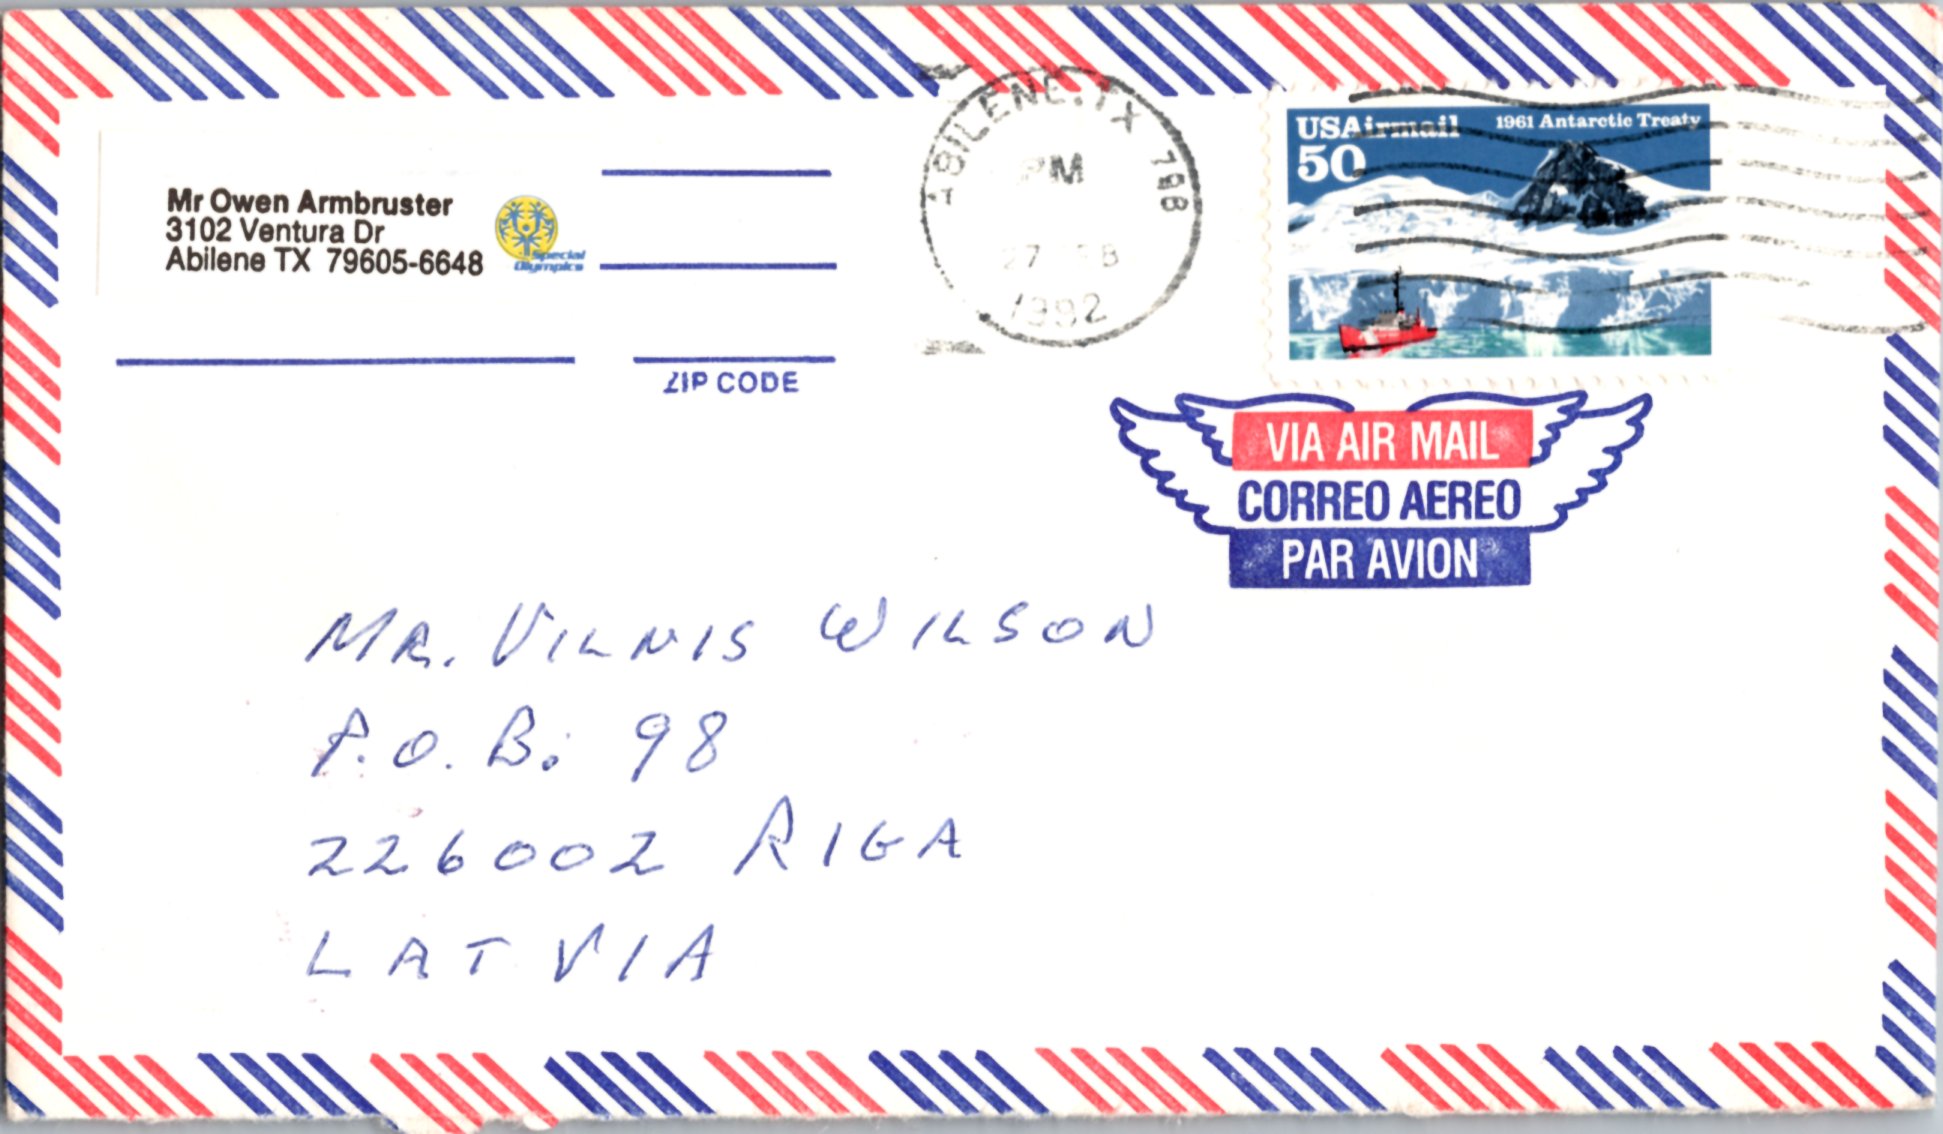 Mr Owen Armbruster
3102 Ventura Dr
Abilene TX 79605-6648
Special
Olympics
ZIP CODE
ABILENE, TX 796
PM
27
1992
USAirmail
50
1961 Antarctic Treaty
VIA AIR MAIL
CORREO AEREO
PAR AVION
MR. VILNIS WILSON
P.O. B: 98
226002 RIGA
LATVIA